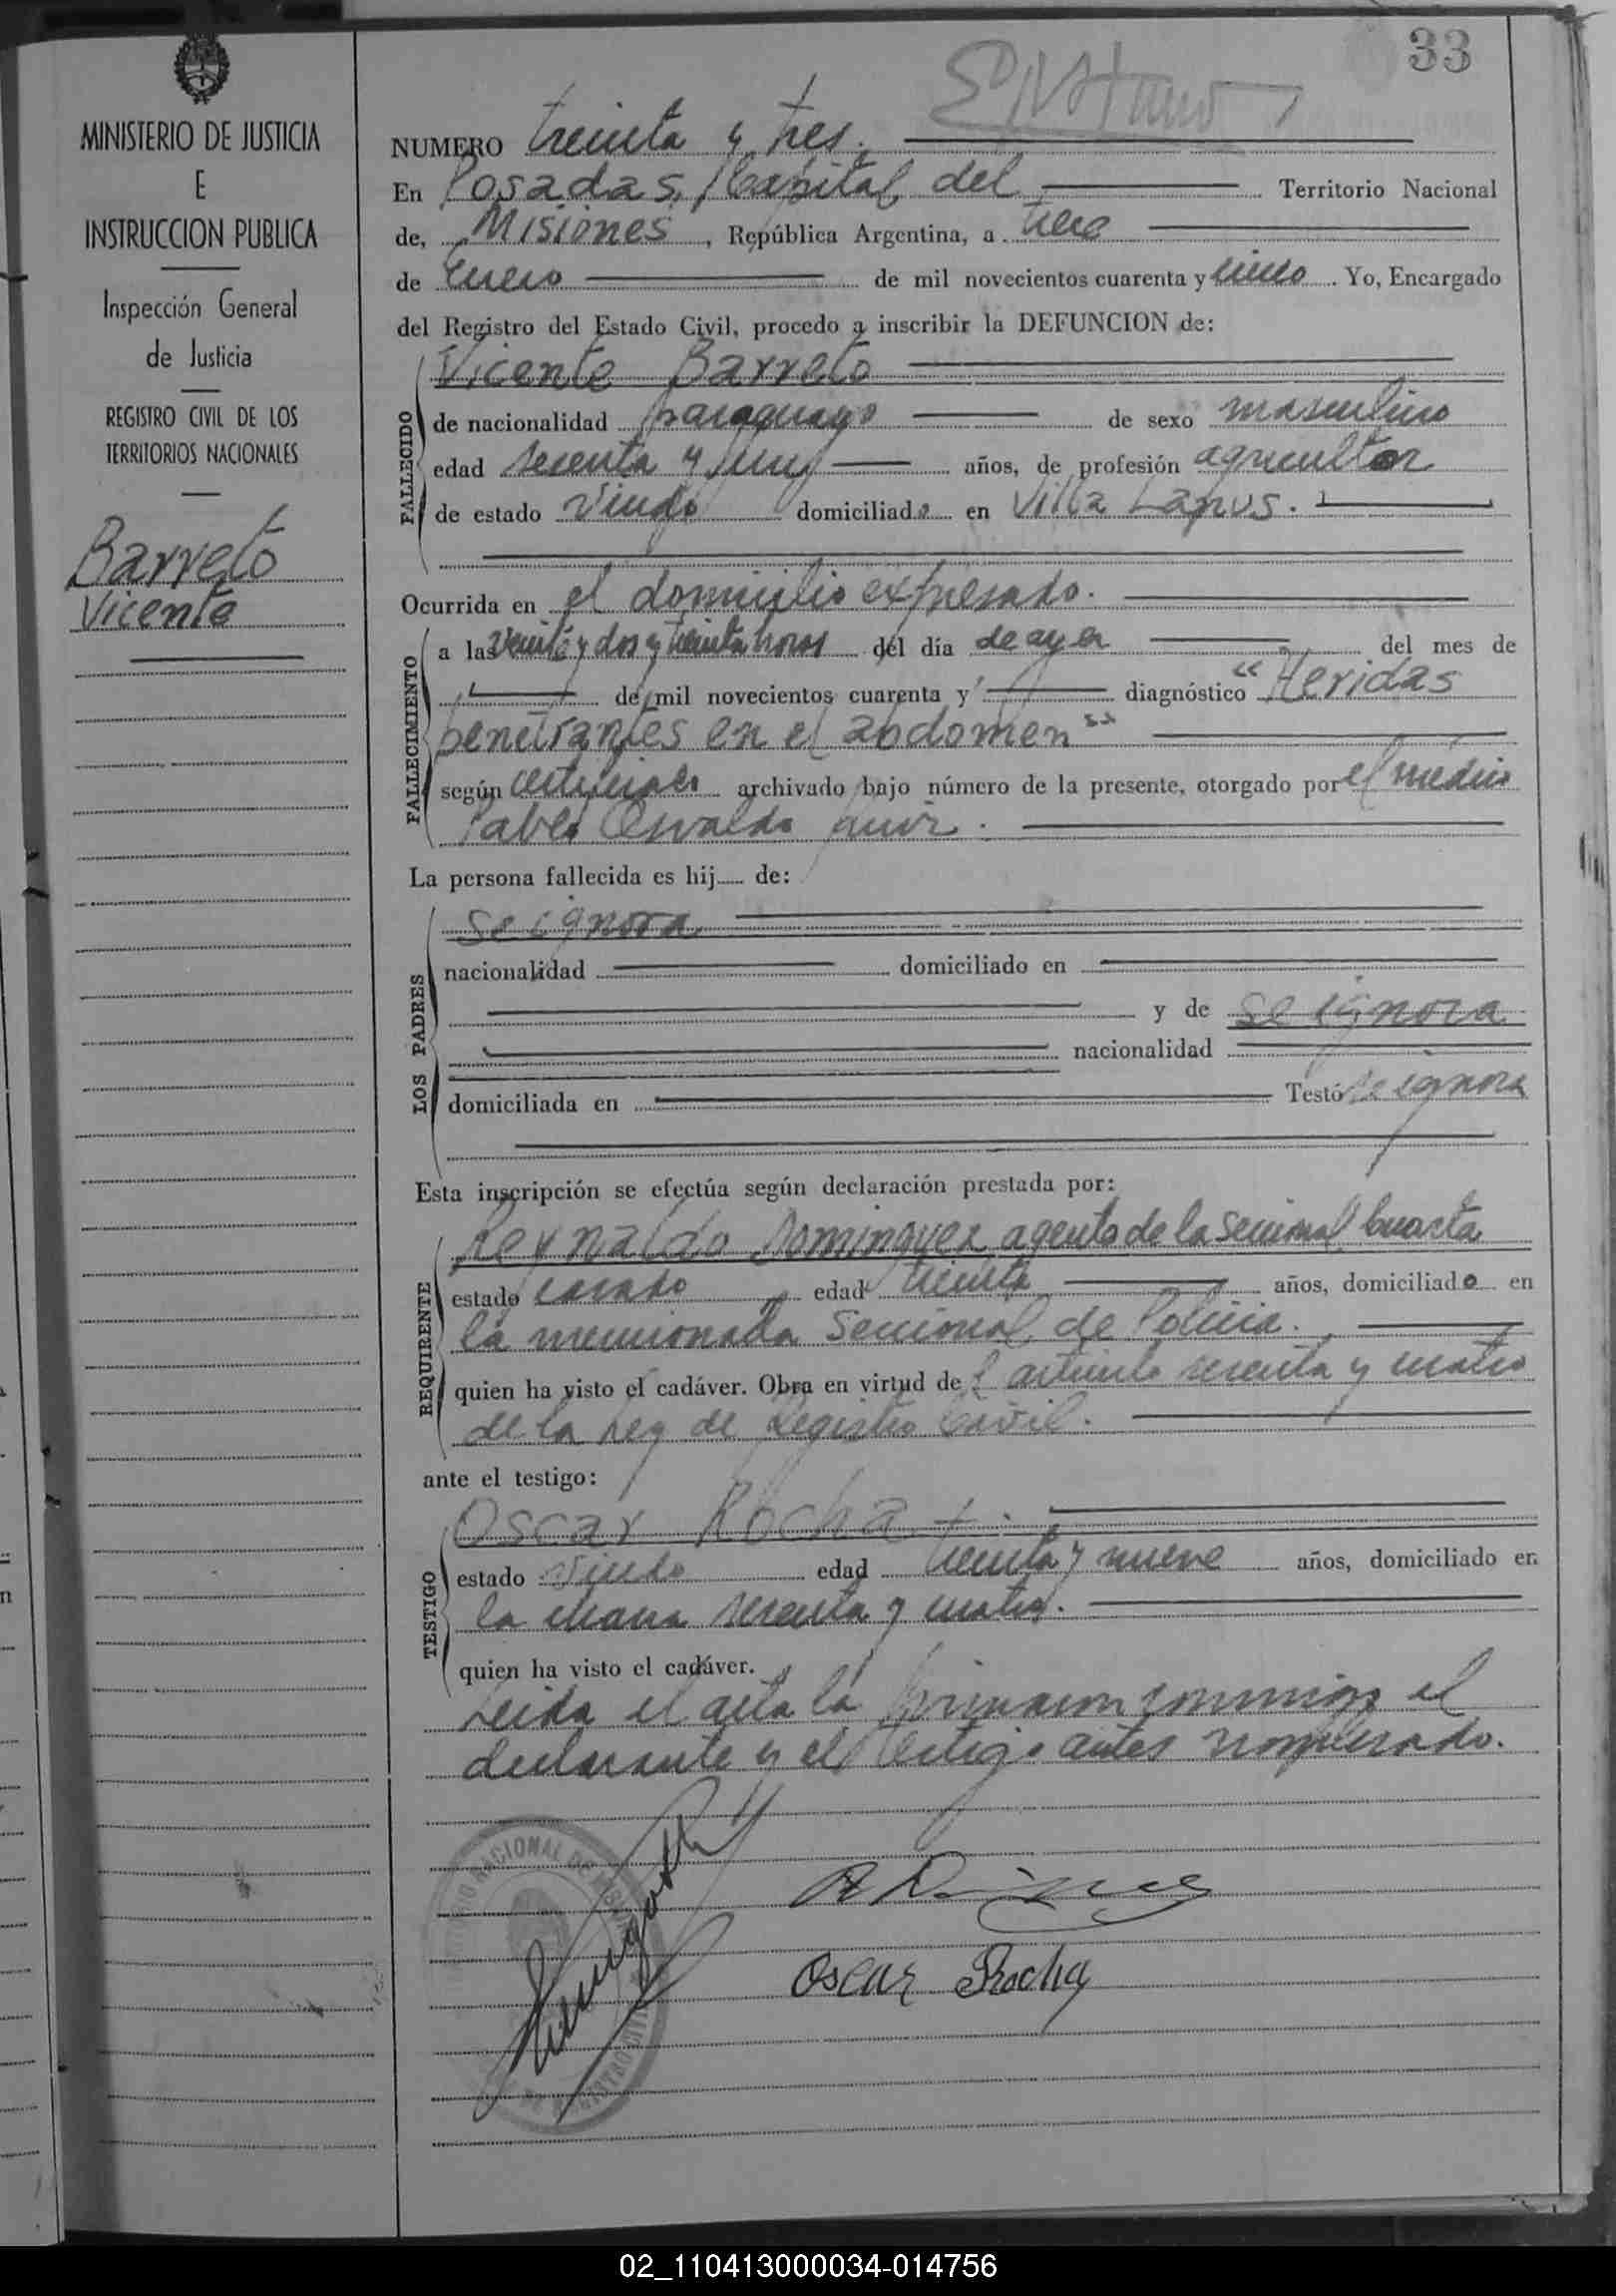 33
MINISTERIO DE JUSTICIA
E
INSTRUCCION PUBLICA
Inspección General
de Justicia
REGISTRO CIVIL DE LOS
TERRITORIOS NACIONALES
Barreto
Vicente
NUMERO treinta y tres.
En Posadas, Capital del Territorio Nacional
de, Misiones, República Argentina, a trece
de Enero de mil novecientos cuarenta y cinco. Yo, Encargado
del Registro del Estado Civil, procedo a inscribir la DEFUNCION de:
Vicente Barreto
FALLECIDO
de nacionalidad paraguayo de sexo masculino
edad sesenta y años, de profesión agricultor
de estado viudo domiciliado en Villa Lanus.
Ocurrida en el domicilio expresado.
FALLECIMIENTO
a las veinte y dos y treinta horas del día de ayer del mes de
de mil novecientos cuarenta y diagnóstico "Heridas
penetrantes en el abdomen"
según certificado archivado bajo número de la presente, otorgado por el médico
Pablo Osvaldo
La persona fallecida es hij de:
LOS PADRES
se ignora
nacionalidad domiciliado en
y de se ignora
nacionalidad
domiciliada en Testó se ignora
Esta inscripción se efectúa según declaración prestada por:
REQUIRENTE
Reynaldo Dominguez, agente de la Seccional Cuarta
estado casado edad treinta años, domiciliado en
la mencionada Seccional de Policia.
quien ha visto el cadáver. Obra en virtud del artículo sesenta y cuatro
de la Ley de Registro Civil.
ante el testigo:
TESTIGO
Oscar Rocha
estado viudo edad treinta y nueve años, domiciliado en
la chacra sesenta y cuatro.
quien ha visto el cadáver.
Leida el acta la firmaron conmigo el
declarante y el testigo antes nombrado.
Oscar Rocha
02_110413000034-014756